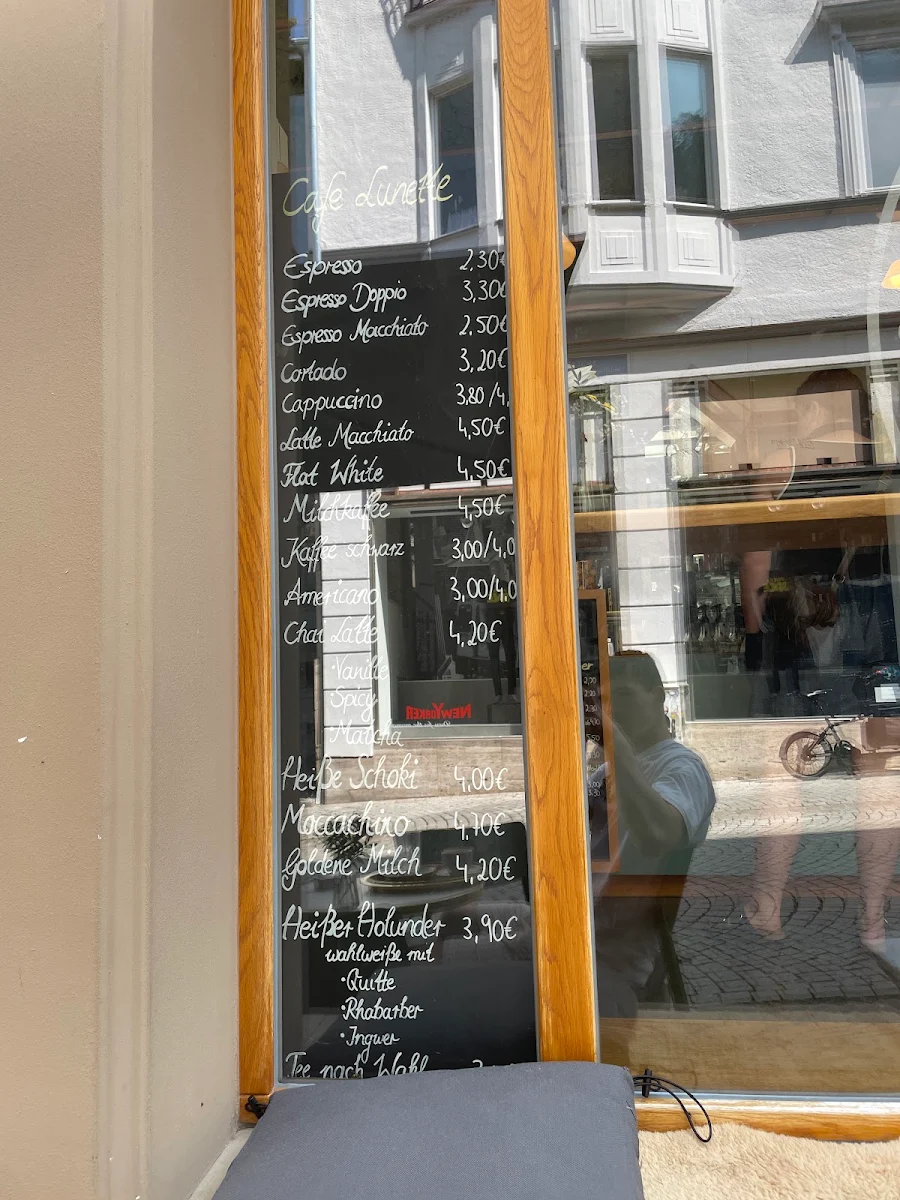 Café Lunette
Espresso 2,30€
Espresso Doppio 3,30€
Espresso Macchiato 2,50€
Cortado 3,20€
Cappuccino 3,80 /4,
Latte Macchiato 4,50€
Flat White 4,50€
Milchkaffee 4,50€
Kaffee schwarz 3,00/4,0
Americano 3,00/4,0
Chai Latte 4,20€
·Vanille
·Spicy
·Matcha
Heiße Schoki 4,00€
Moccachino 4,70€
Goldene Milch 4,20€
Heißer Holunder 3,90€
wahlweiße mit
·Quitte
·Rhabarber
·Ingwer
Tee nach Wahl
NEWYORKER